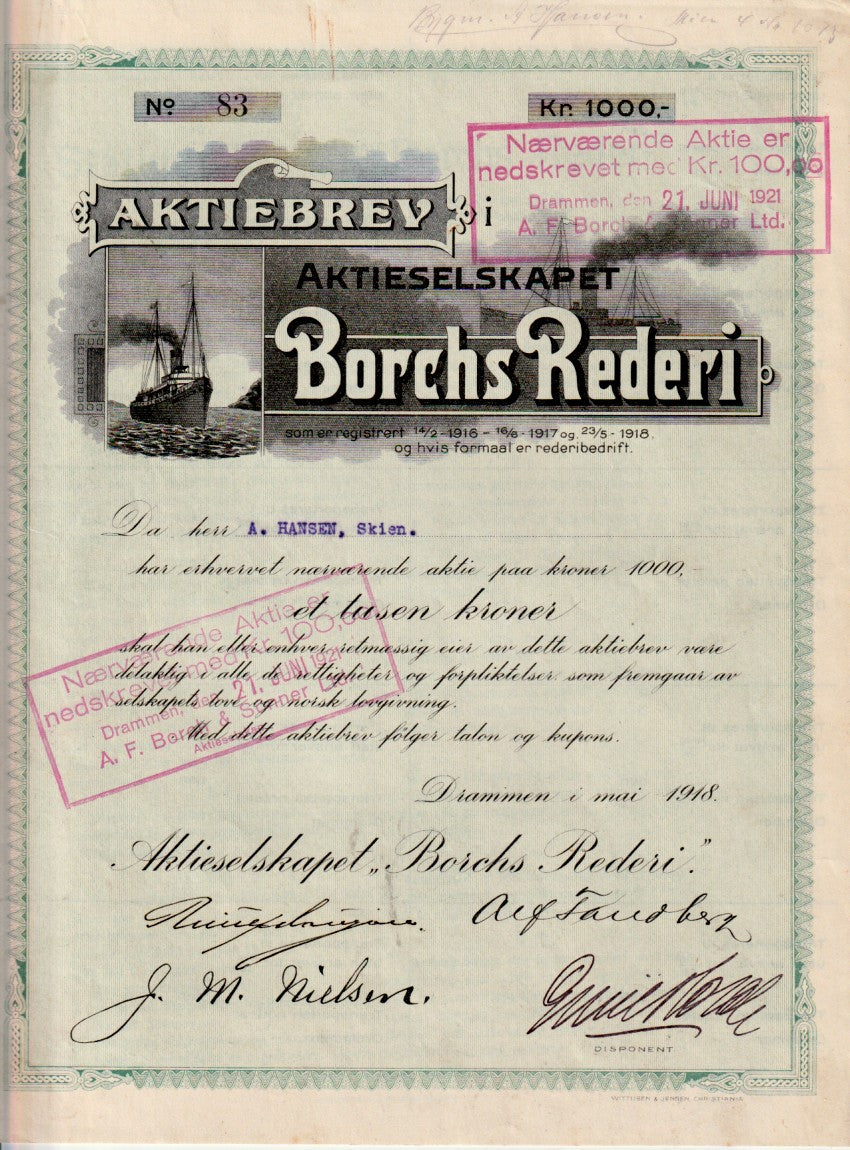 Hansen.
No 83
Kr. 1000,-
Nærværende Aktie er
nedskrevet med Kr. 100,00
Drammen, den 21. JUNI 1921
A. F. Borch & Sønner Ltd.
AKTIEBREV i
AKTIESELSKAPET
Borchs Rederi
som er registrert 14/2 - 1916 - 16/8 - 1917 og 23/5 - 1918.
og hvis formaal er rederibedrift.
Da herr A. HANSEN, Skien.
har erhvervet nærværende aktie paa kroner 1000,-
et tusen kroner
skal han eller enhver retmæssig eier av dette aktiebrev være
delaktig i alle de rettigheter og forpliktelser som fremgaar av
selskapets love og norsk lovgivning.
Med dette aktiebrev følger talon og kupons.
Nærværende Aktie er
nedskrevet med Kr. 100,00
Drammen, den 21. JUNI 1921
A. F. Borch & Sønner Ltd.
Drammen i mai 1918.
Aktieselskapet „Borchs Rederi."
Alf Sandberg
J. M. Nielsen.
DISPONENT.
WITTUSEN & JENSEN, CHRISTIANIA